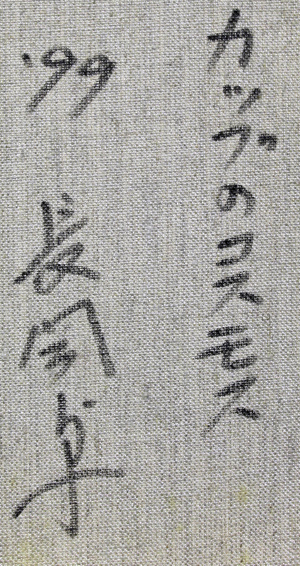 カップのコスモス
'99 長岡卓